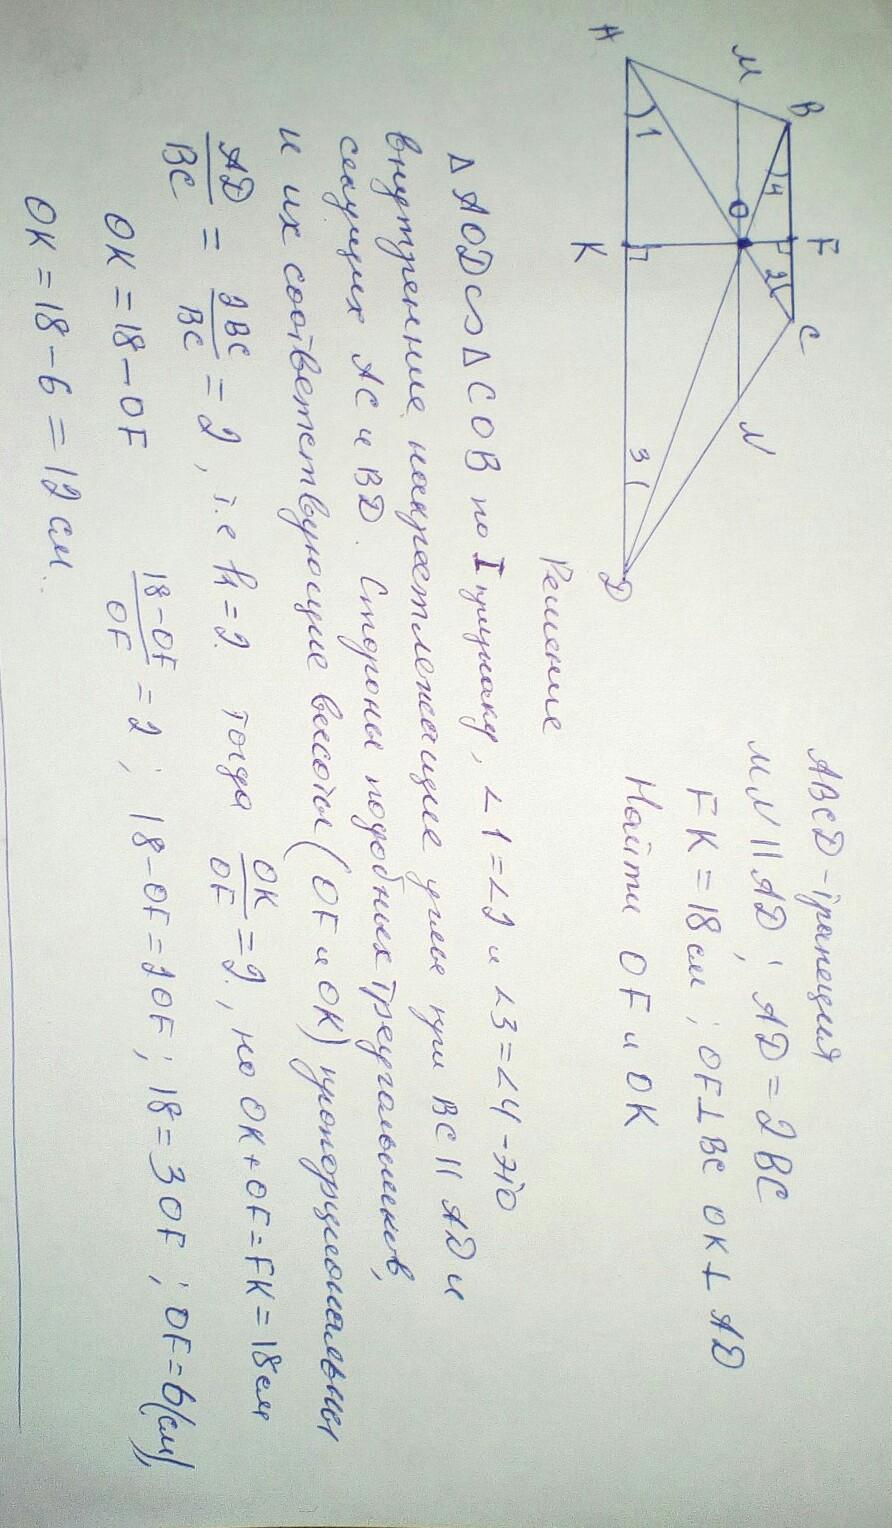 B F C
4 2
M O N
1 3
A K D
ABCD - трапеция
MN || AD; AD = 2BC
FK = 18 см; OF ⊥ BC OK ⊥ AD
Найти OF и OK
Решение
△ AOD ∽ △ COB по I признаку, ∠1=∠2 и ∠3=∠4 - это
внутренние накрест лежащие углы при BC || AD и
секущих AC и BD. Стороны подобных треугольников,
и их соответствующие высоты (OF и OK) пропорциональны
AD/BC = 2BC/BC = 2, т.е k=2. тогда OK/OF = 2, но OK+OF=FK=18 см
OK = 18-OF (18-OF)/OF = 2; 18-OF=2OF; 18=3OF; OF=6(см),
OK = 18-6 = 12 см.